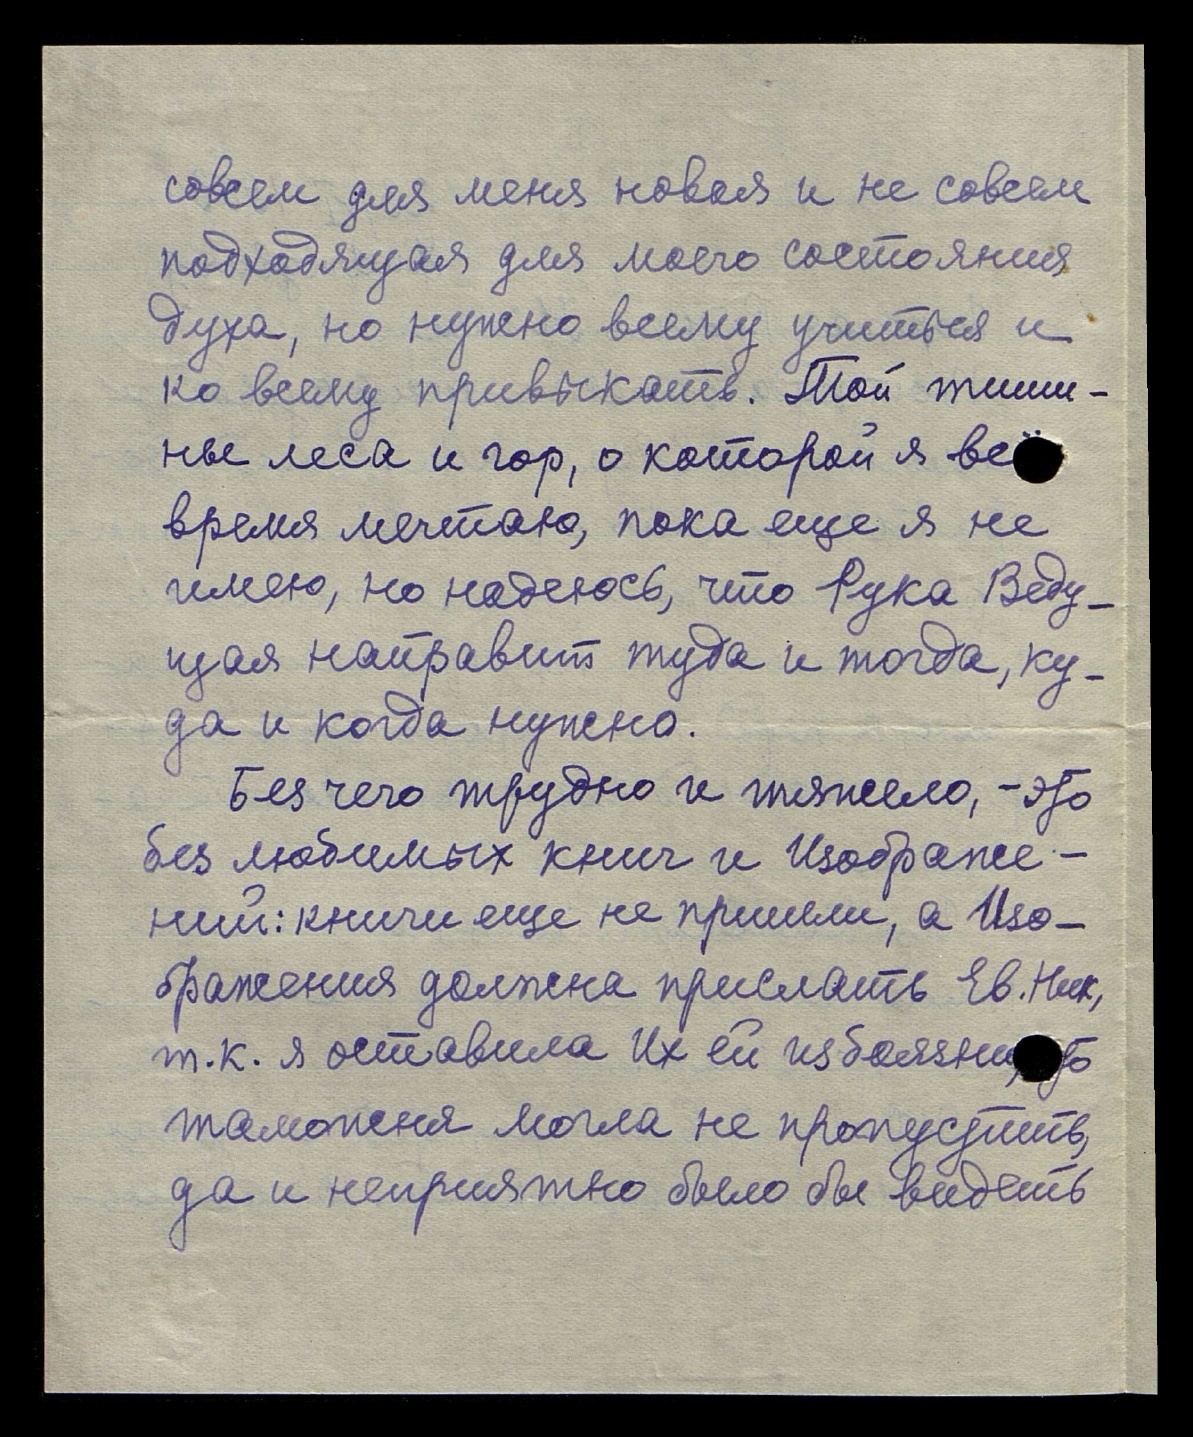 совсем для меня новая и не совсем
подходящая для моего состояния
духа, но нужно всему учиться и
ко всему привыкать. Той тиши-
ны леса и гор, о которой я всё
время мечтаю, пока еще я не
имею, но надеюсь, что Рука Веду-
щая направит туда и тогда, ку-
да и когда нужно.
Без чего трудно и тяжело, - это
без любимых книг и Изображе-
ний: книги еще не пришли, а Изо-
бражения должна прислать Ев. Ник,
т.к. я оставила Их ей из боязни,
таможня могла не пропустить,
да и неприятно было бы видеть